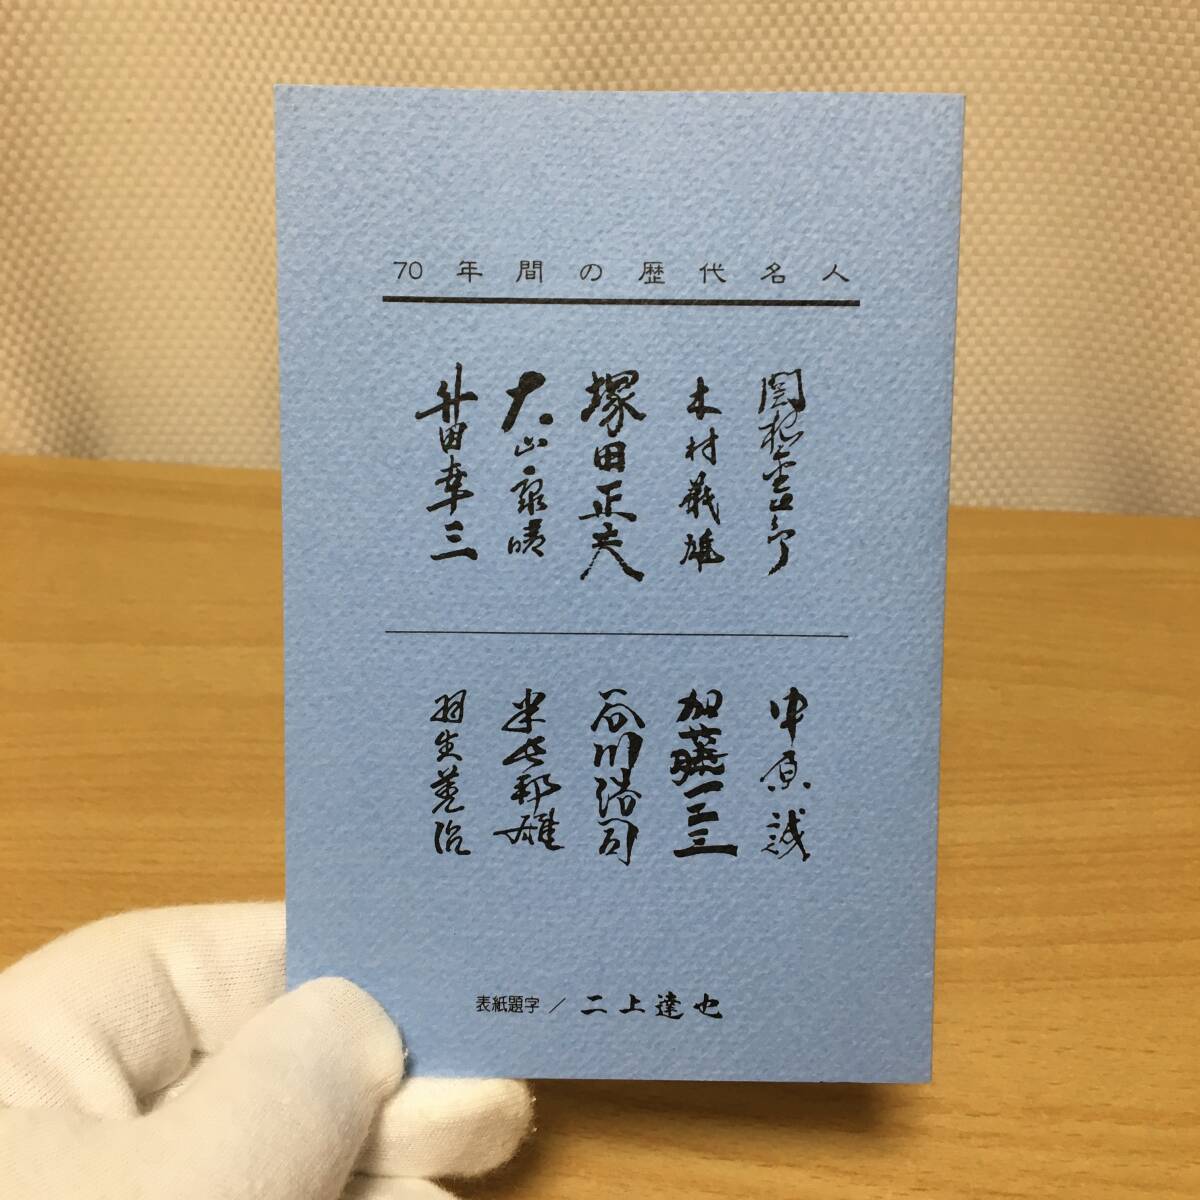 70年間の歴代名人
関根金次郎
木村義雄
塚田正夫
大山康晴
升田幸三
中原誠
加藤一二三
谷川浩司
米長邦雄
羽生善治
表紙題字／二上達也